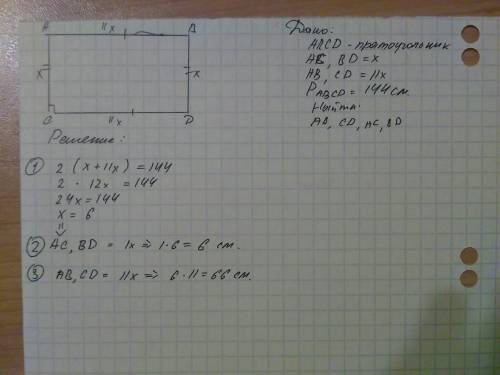 A 11x B
x x
C 11x D
Дано:
ABCD - прямоугольник
AC, BD = x
AB, CD = 11x
PABCD = 144 см.
Найти:
AB, CD, AC, BD
Решение:
① 2 (x+11x) = 144
2 · 12x = 144
24x = 144
x = 6
⇓
② AC, BD = 1x => 1·6 = 6 см.
③ AB, CD = 11x => 6·11 = 66 см.